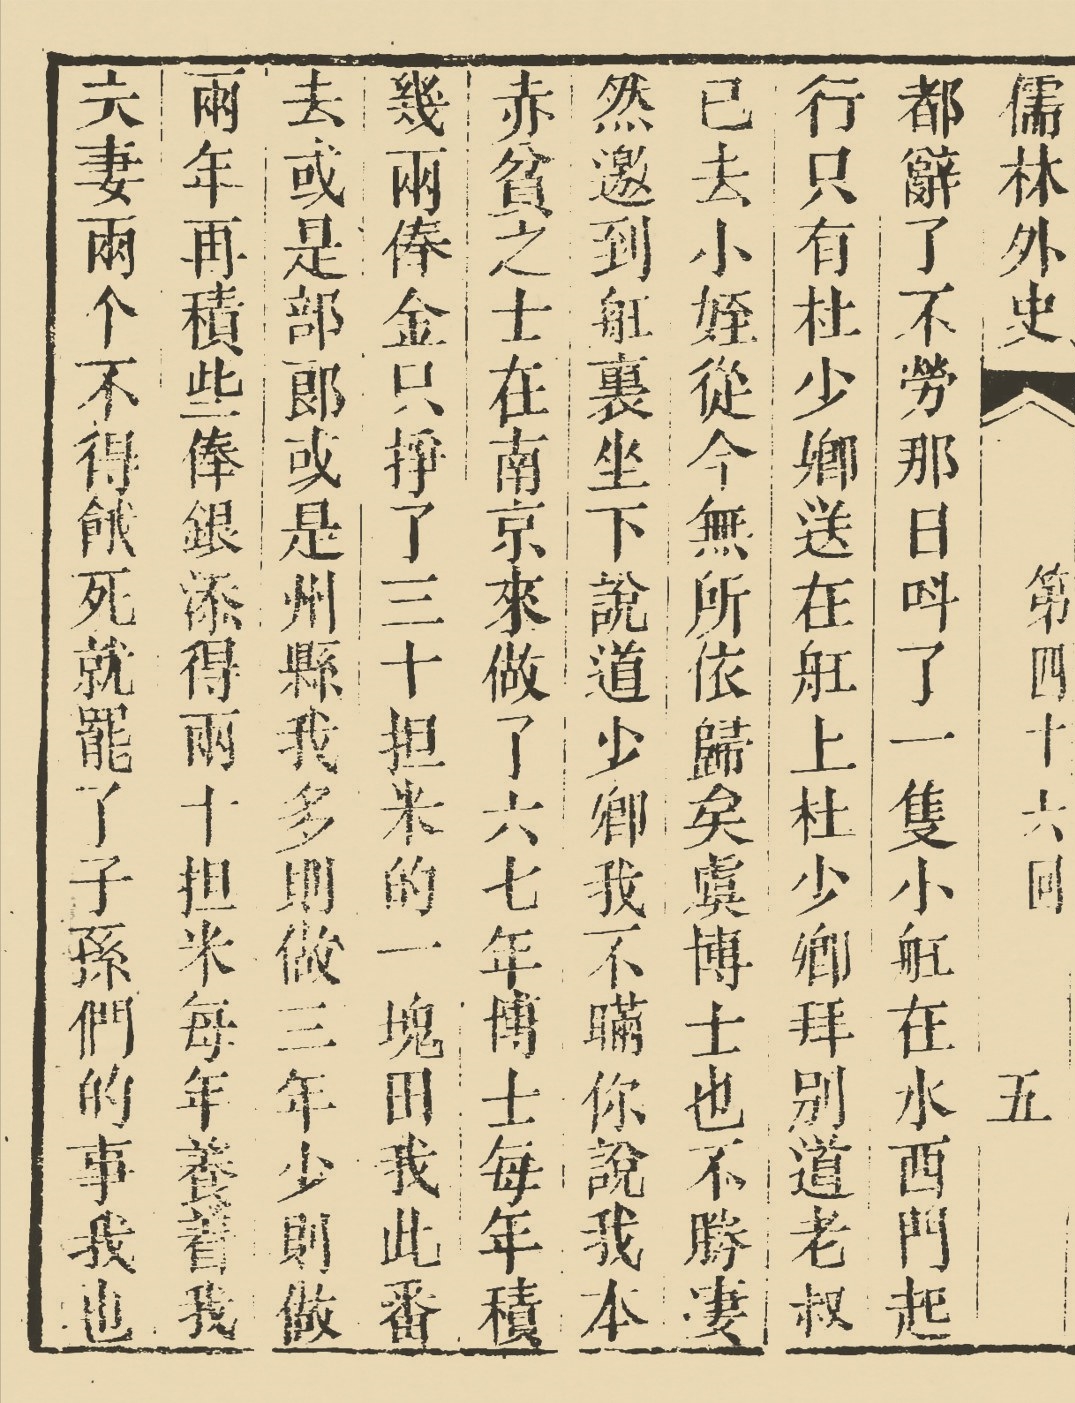 儒林外史 第四十六回 五
都辭了不勞那日呌了一隻小舡在水西門起
行只有杜少卿送在舡上杜少卿拜别道老叔
已去小姪從今無所依歸矣虞博士也不勝凄
然邀到舡裏坐下說道少卿我不瞞你說我本
赤貧之士在南京來做了六七年博士每年積
幾兩俸金只掙了三十担米的一塊田我此番
去或是部郎或是州縣我多則做三年少則做
兩年再積些俸銀添得兩十担米每年養著我
夫妻兩个不得餓死就罷了子孫們的事我也